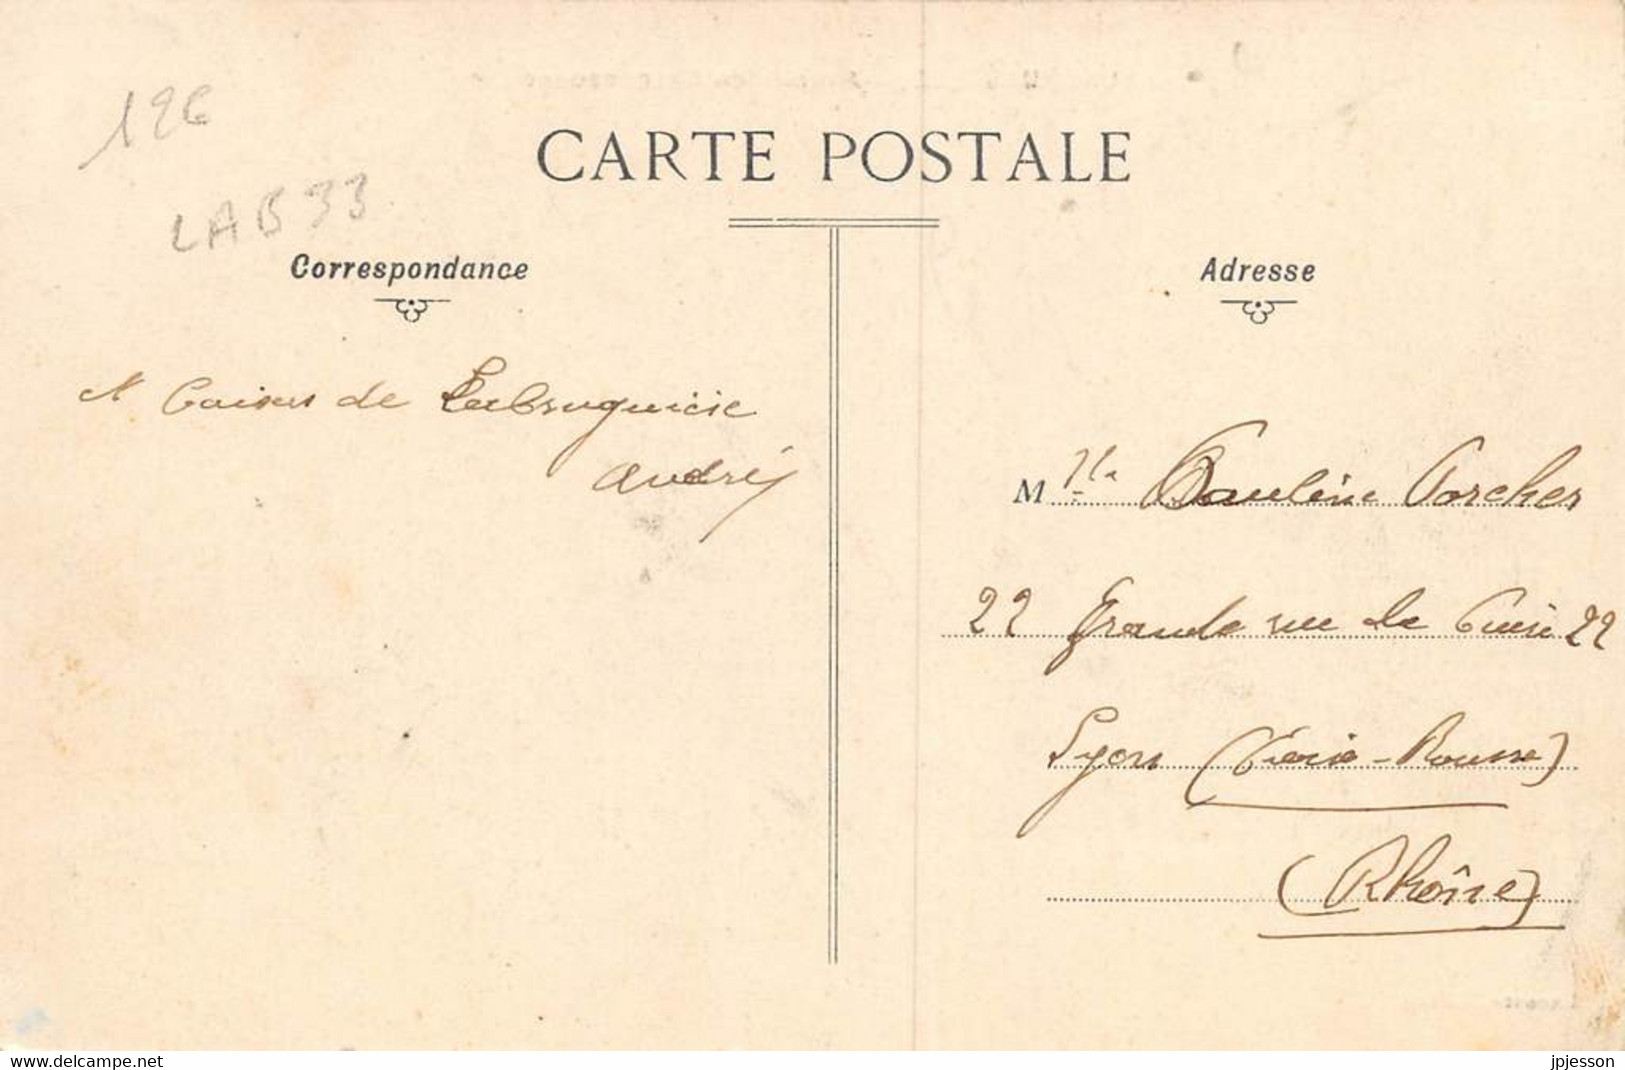 12€
LAB 33
CARTE POSTALE
Correspondance
Adresse
Baisers de Labruguière
André
M lle Pauline Porcher
22 Grande rue de Cuire 22
Lyon (Croix-Rousse)
(Rhône)
www.delcampe.net
jpjesson